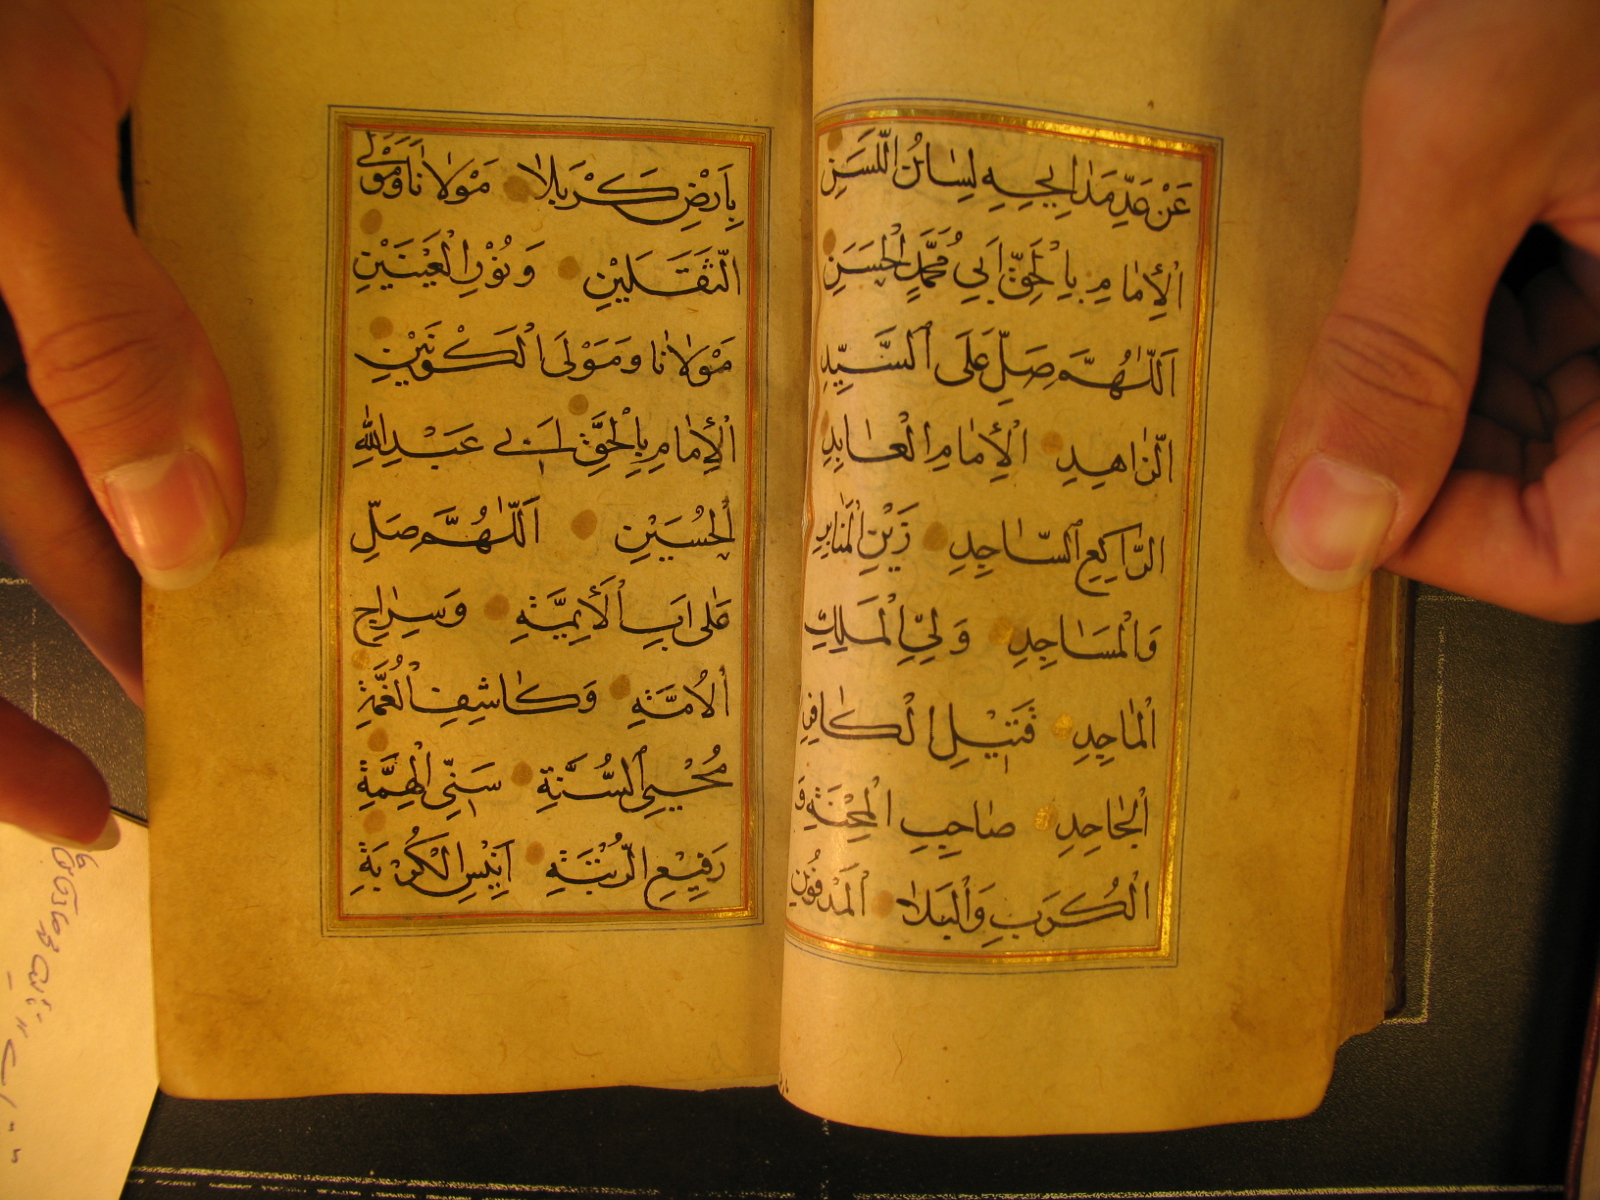 عَنْ عَدِّ مَدَايِحِهِ لِسَانُ اللَّسَنِ
الْإِمَامِ بِالْحَقِّ اَبِي مُحَمَّدٍ الْحَسَنِ
اَللّٰهُمَّ صَلِّ عَلَى السَّيِّدِ
الزَّاهِدِ الْإِمَامِ الْعَابِدِ
الرَّاكِعِ السَّاجِدِ زَيْنِ الْمَنَابِرِ
وَالْمَسَاجِدِ وَلِيِّ الْمَلِكِ
الْمَاجِدِ قَتِيْلِ الْكَافِرِ
الْجَاحِدِ صَاحِبِ الْمِحْنَةِ وَ
الْكُرَبِ وَالْبَلَا الْمَدْفُوْنِ
بِاَرْضِ كَرْبَلَا مَوْلَانَا وَمَوْلَى
الثَّقَلَيْنِ وَنُوْرِ الْعَيْنَيْنِ
مَوْلَانَا وَمَوْلَى الْكَوْنَيْنِ
الْإِمَامِ بِالْحَقِّ اَبِي عَبْدِ اللّٰهِ
الْحُسَيْنِ اَللّٰهُمَّ صَلِّ
عَلٰى اَبِ الْأَئِمَّةِ وَسِرَاجِ
الْأُمَّةِ وَكَاشِفِ الْغُمَّةِ
مُحْيِي السُّنَّةِ سَنِيِّ الْهِمَّةِ
رَفِيْعِ الرُّتْبَةِ اَنِيْسِ الْكُرْبَةِ